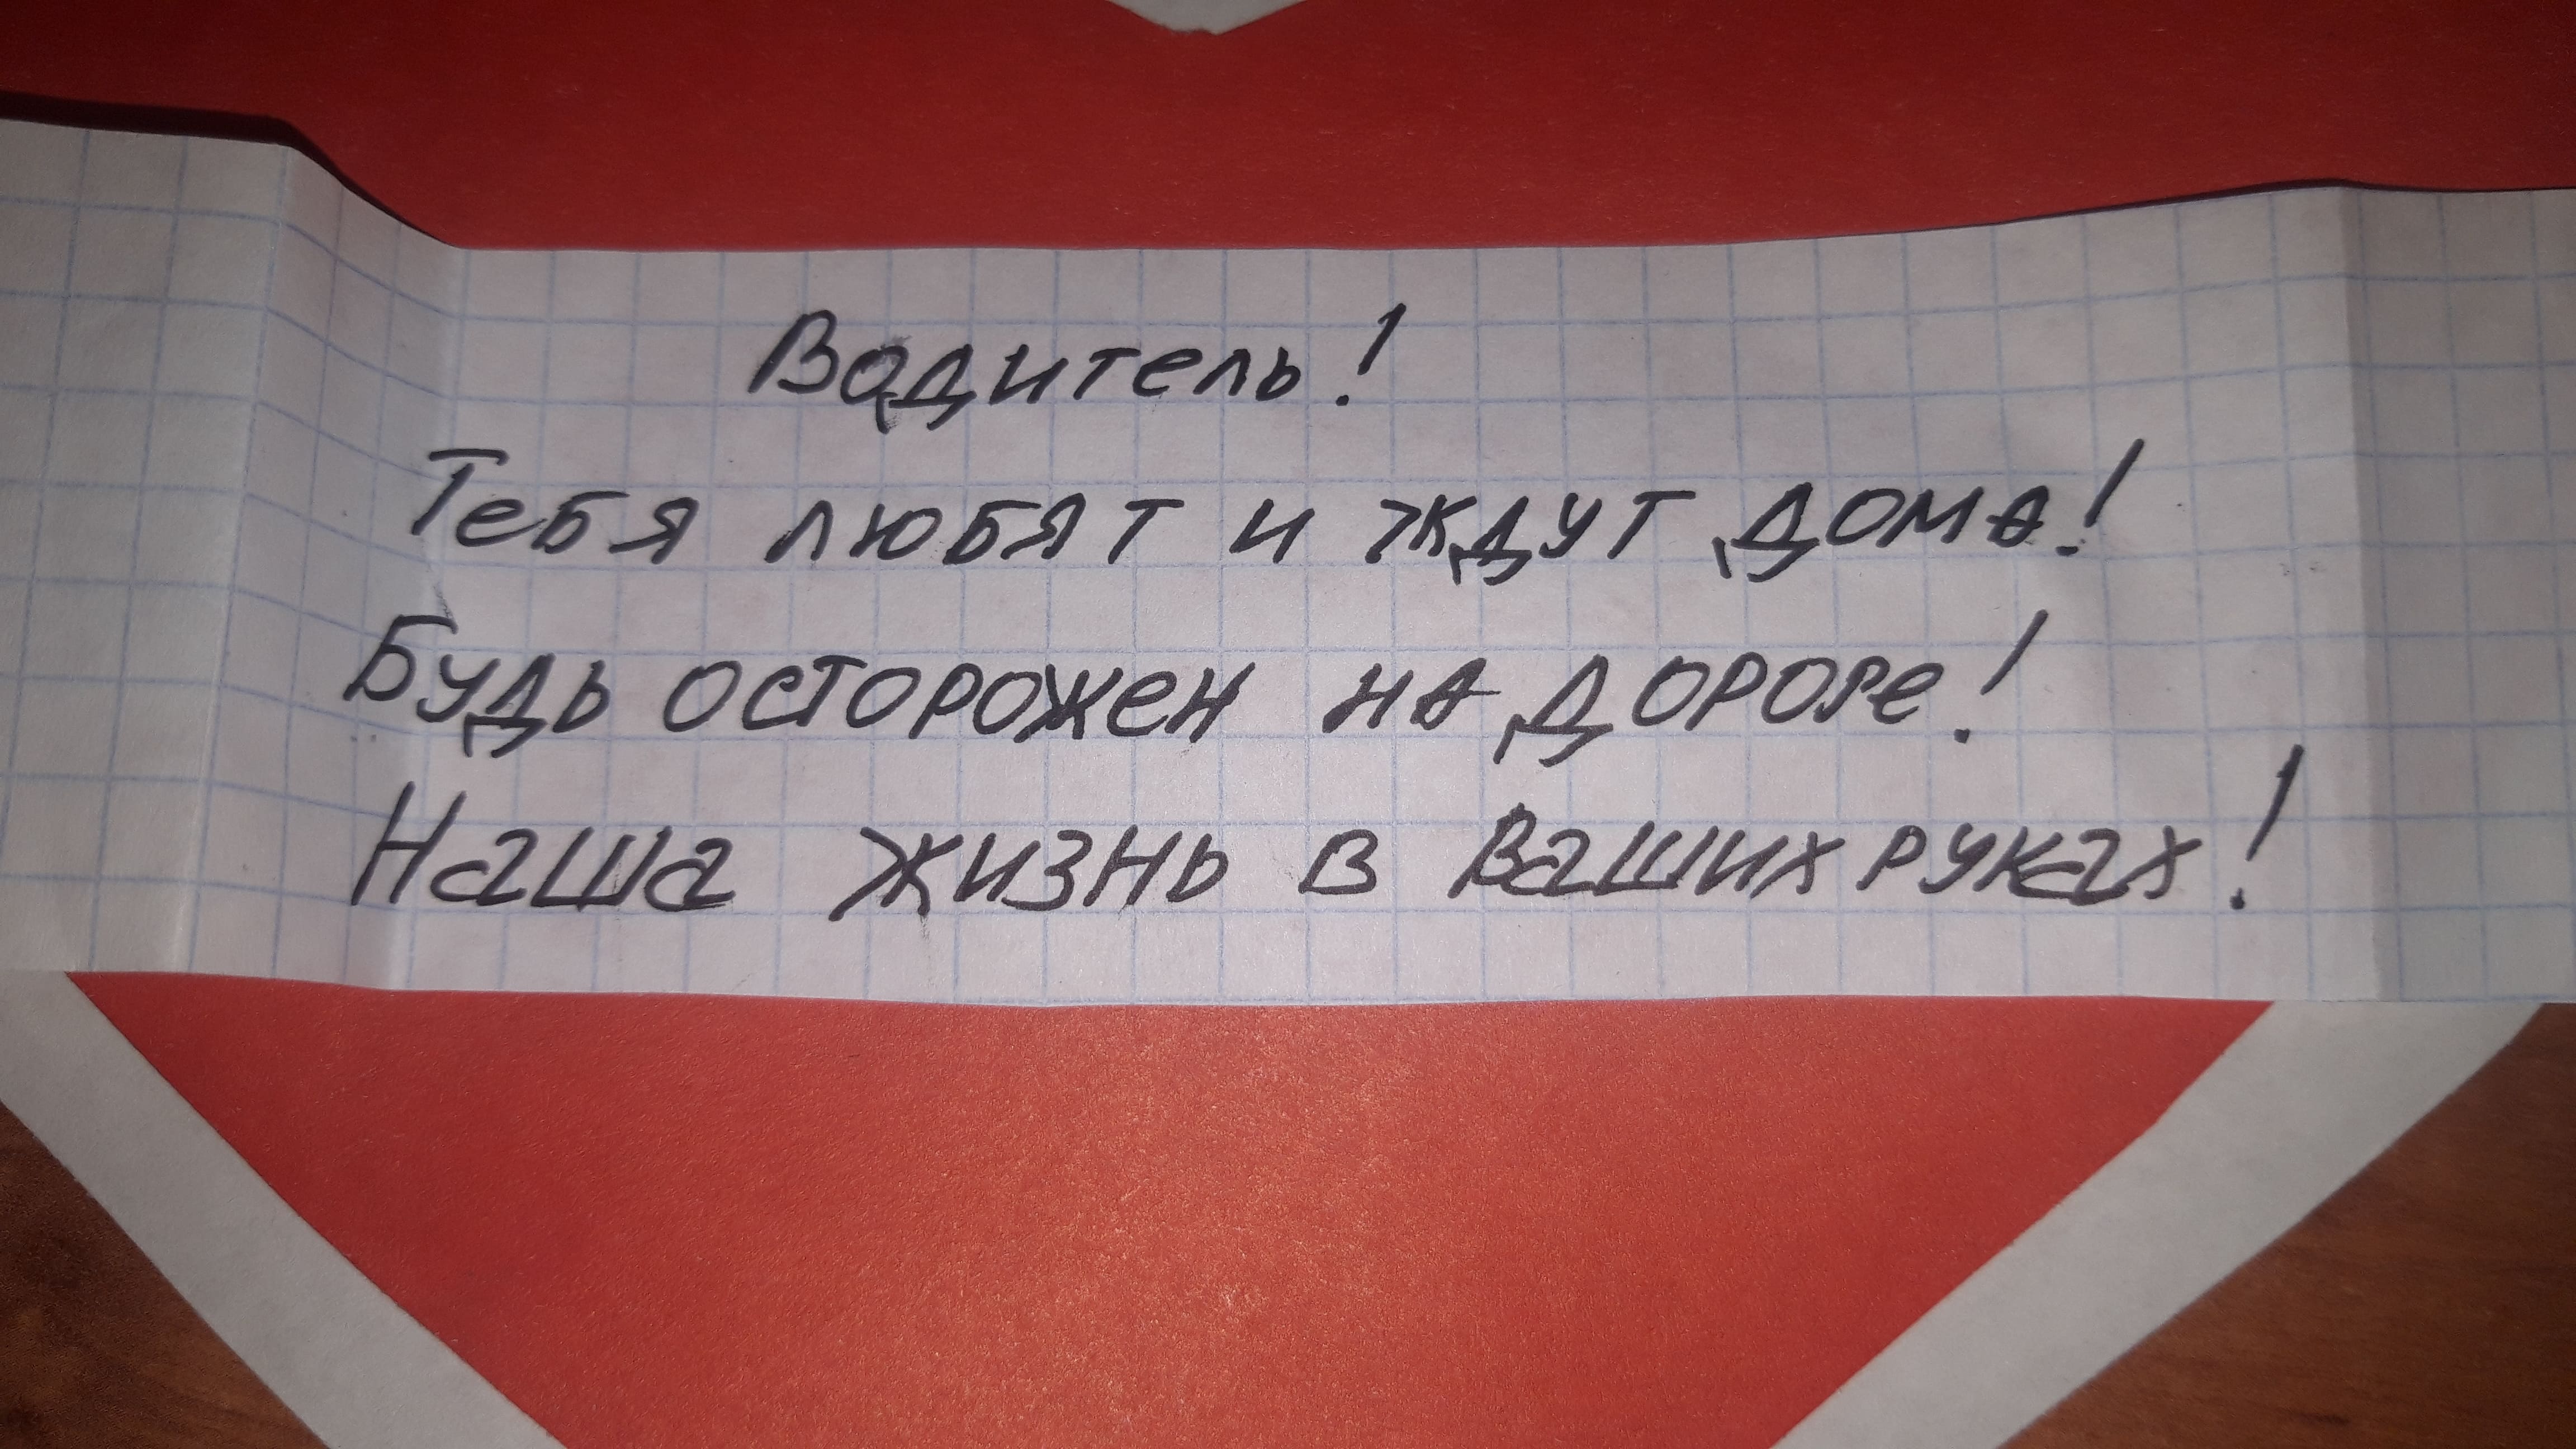 Водитель!
Тебя любят и ждут дома!
Будь осторожен на дороге!
Наша жизнь в Ваших руках!